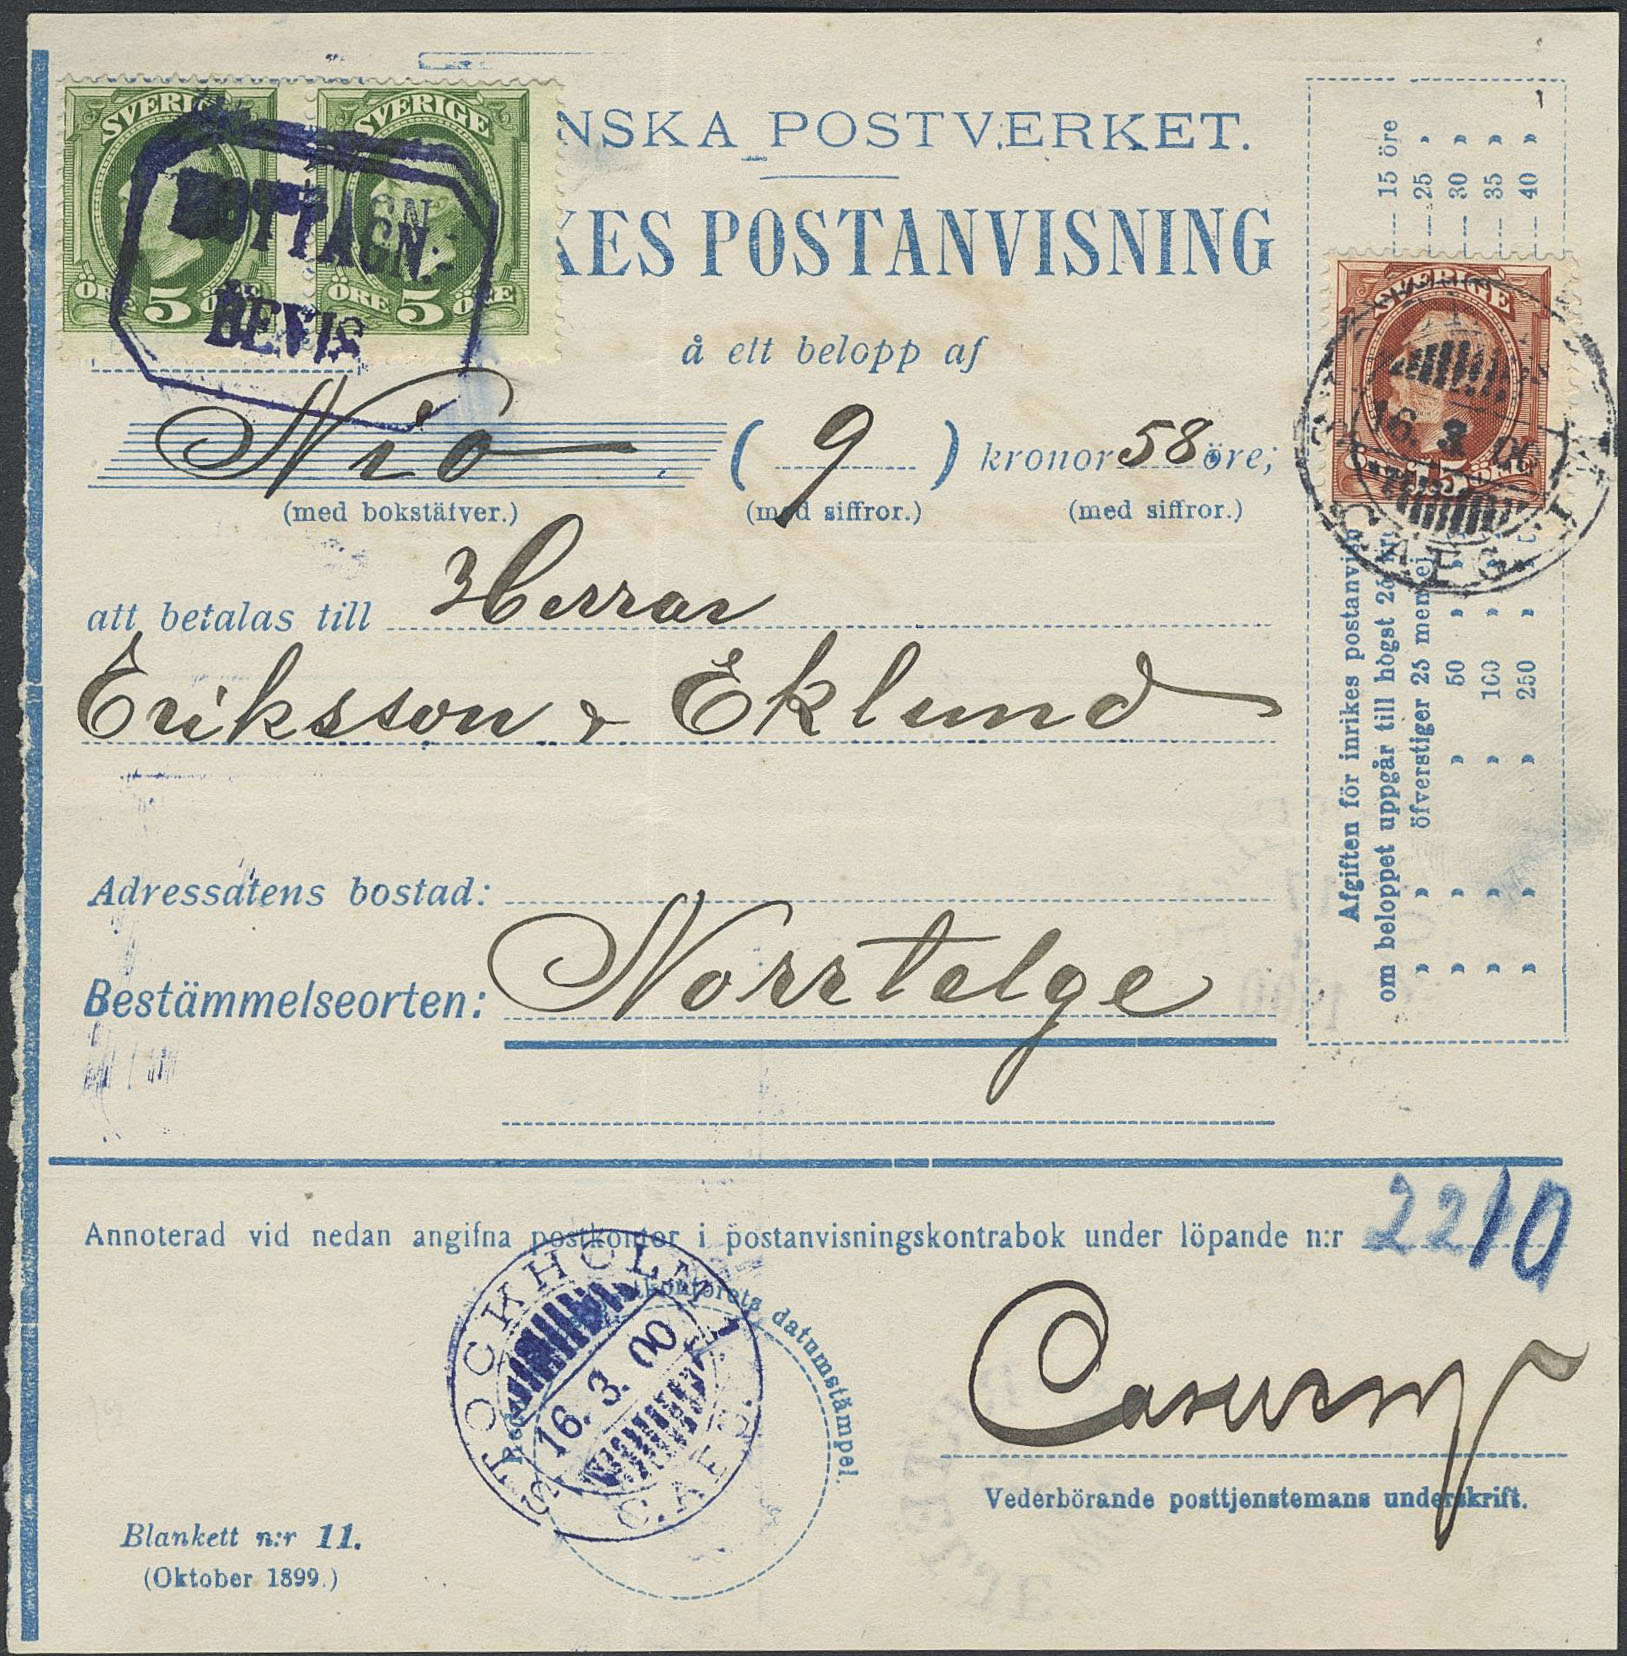 SVERIGE SVERIGE
ÖRE 5 ÖRE ÖRE 5 ÖRE
MOTTAGN.-
BEVIS
NSKA POSTVERKET.
KES POSTANVISNING
å ett belopp af
Nio (9) kronor 58 öre;
(med bokstäfver.) (med siffror.) (med siffror.)
att betalas till Herrar
Eriksson & Eklund
Adressatens bostad:
Bestämmelseorten: Norrtelge
Afgiften för inrikes postanvisn
om beloppet uppgår till högst 25 kr 15 öre
» » öfverstiger 25 men ej 25 »
» » » 50 » 30 »
» » » 100 » 35 »
» » » 250 » 40 »
SVERIGE
16. 3. 00
C.A.F.G.
Annoterad vid nedan angifna postkontor i postanvisningskontrabok under löpande n:r 2210
STOCKHOLM 1
16. 3. 00
C.A.F.G.
postkontorets datumstämpel.
Vederbörande posttjenstemans underskrift.
Blankett n:r 11.
(Oktober 1899.)